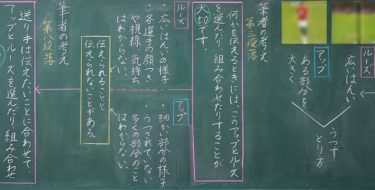 ルーズ
広いはんい
アップ
ある部分を
大きく
うつす
とり方
筆者の考え
第三段落
何かを伝えるときには、このアップとルーズ
を選んだり、組み合わせたりすることが
大切です。
ルーズ
・広いはんいの様子
・各選手の顔つき
や視線、気持ち
はわからない。
アップ
・細かい部分の様子
・うつされていない
多くの部分のこと
はわからない。
伝えられることと
伝えられないことがある。
筆者の考え
第八段落
送り手は伝えたいことに合わせて、
アップとルーズを選んだり、組み合わせ